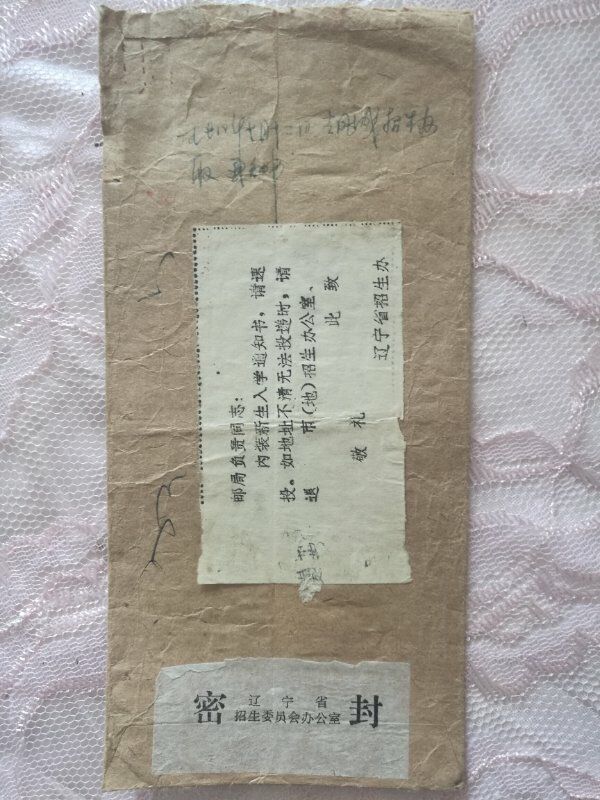 招生办
邮局负责同志：
内装新生入学通知书，请速
投。如地址不清无法投递时，请
退 市（地）招生办公室、
此 致
敬 礼
辽宁省招生办
密 辽宁省 封
招生委员会办公室